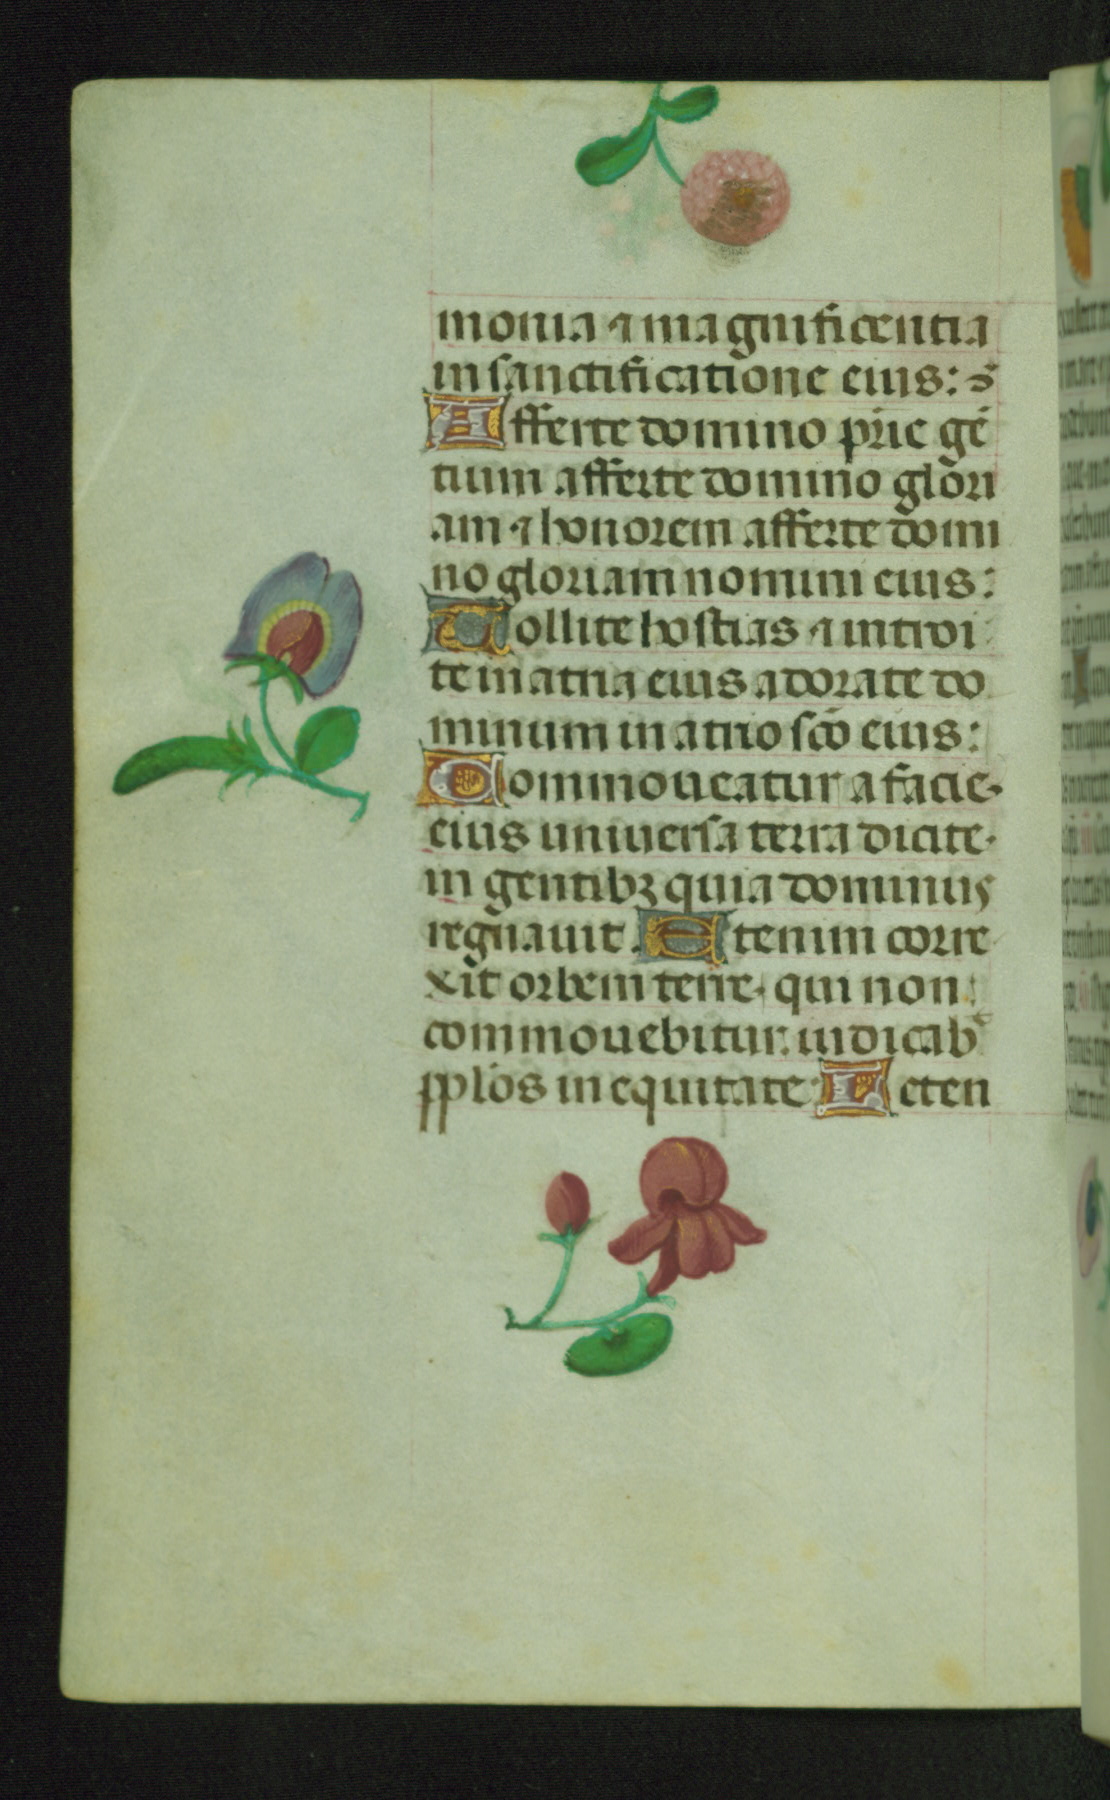 monia ⁊ magnificentia
in sanctificatione eius: s̄
Afferte domino prie gē
tium afferte domino glori
am ⁊ honorem afferte domi
no gloriam nomini eius:
Tollite hostias ⁊ introi
te in atria eius adorate do
minum in atrio sc̄o eius:
Commoueatur a facie
eius uniuersa terra dicite
in gentibꝫ quia dominus
regnauit. Etenim corre
xit orbem terre, qui non
commouebitur: iudicab
pplos in equitate: Leten